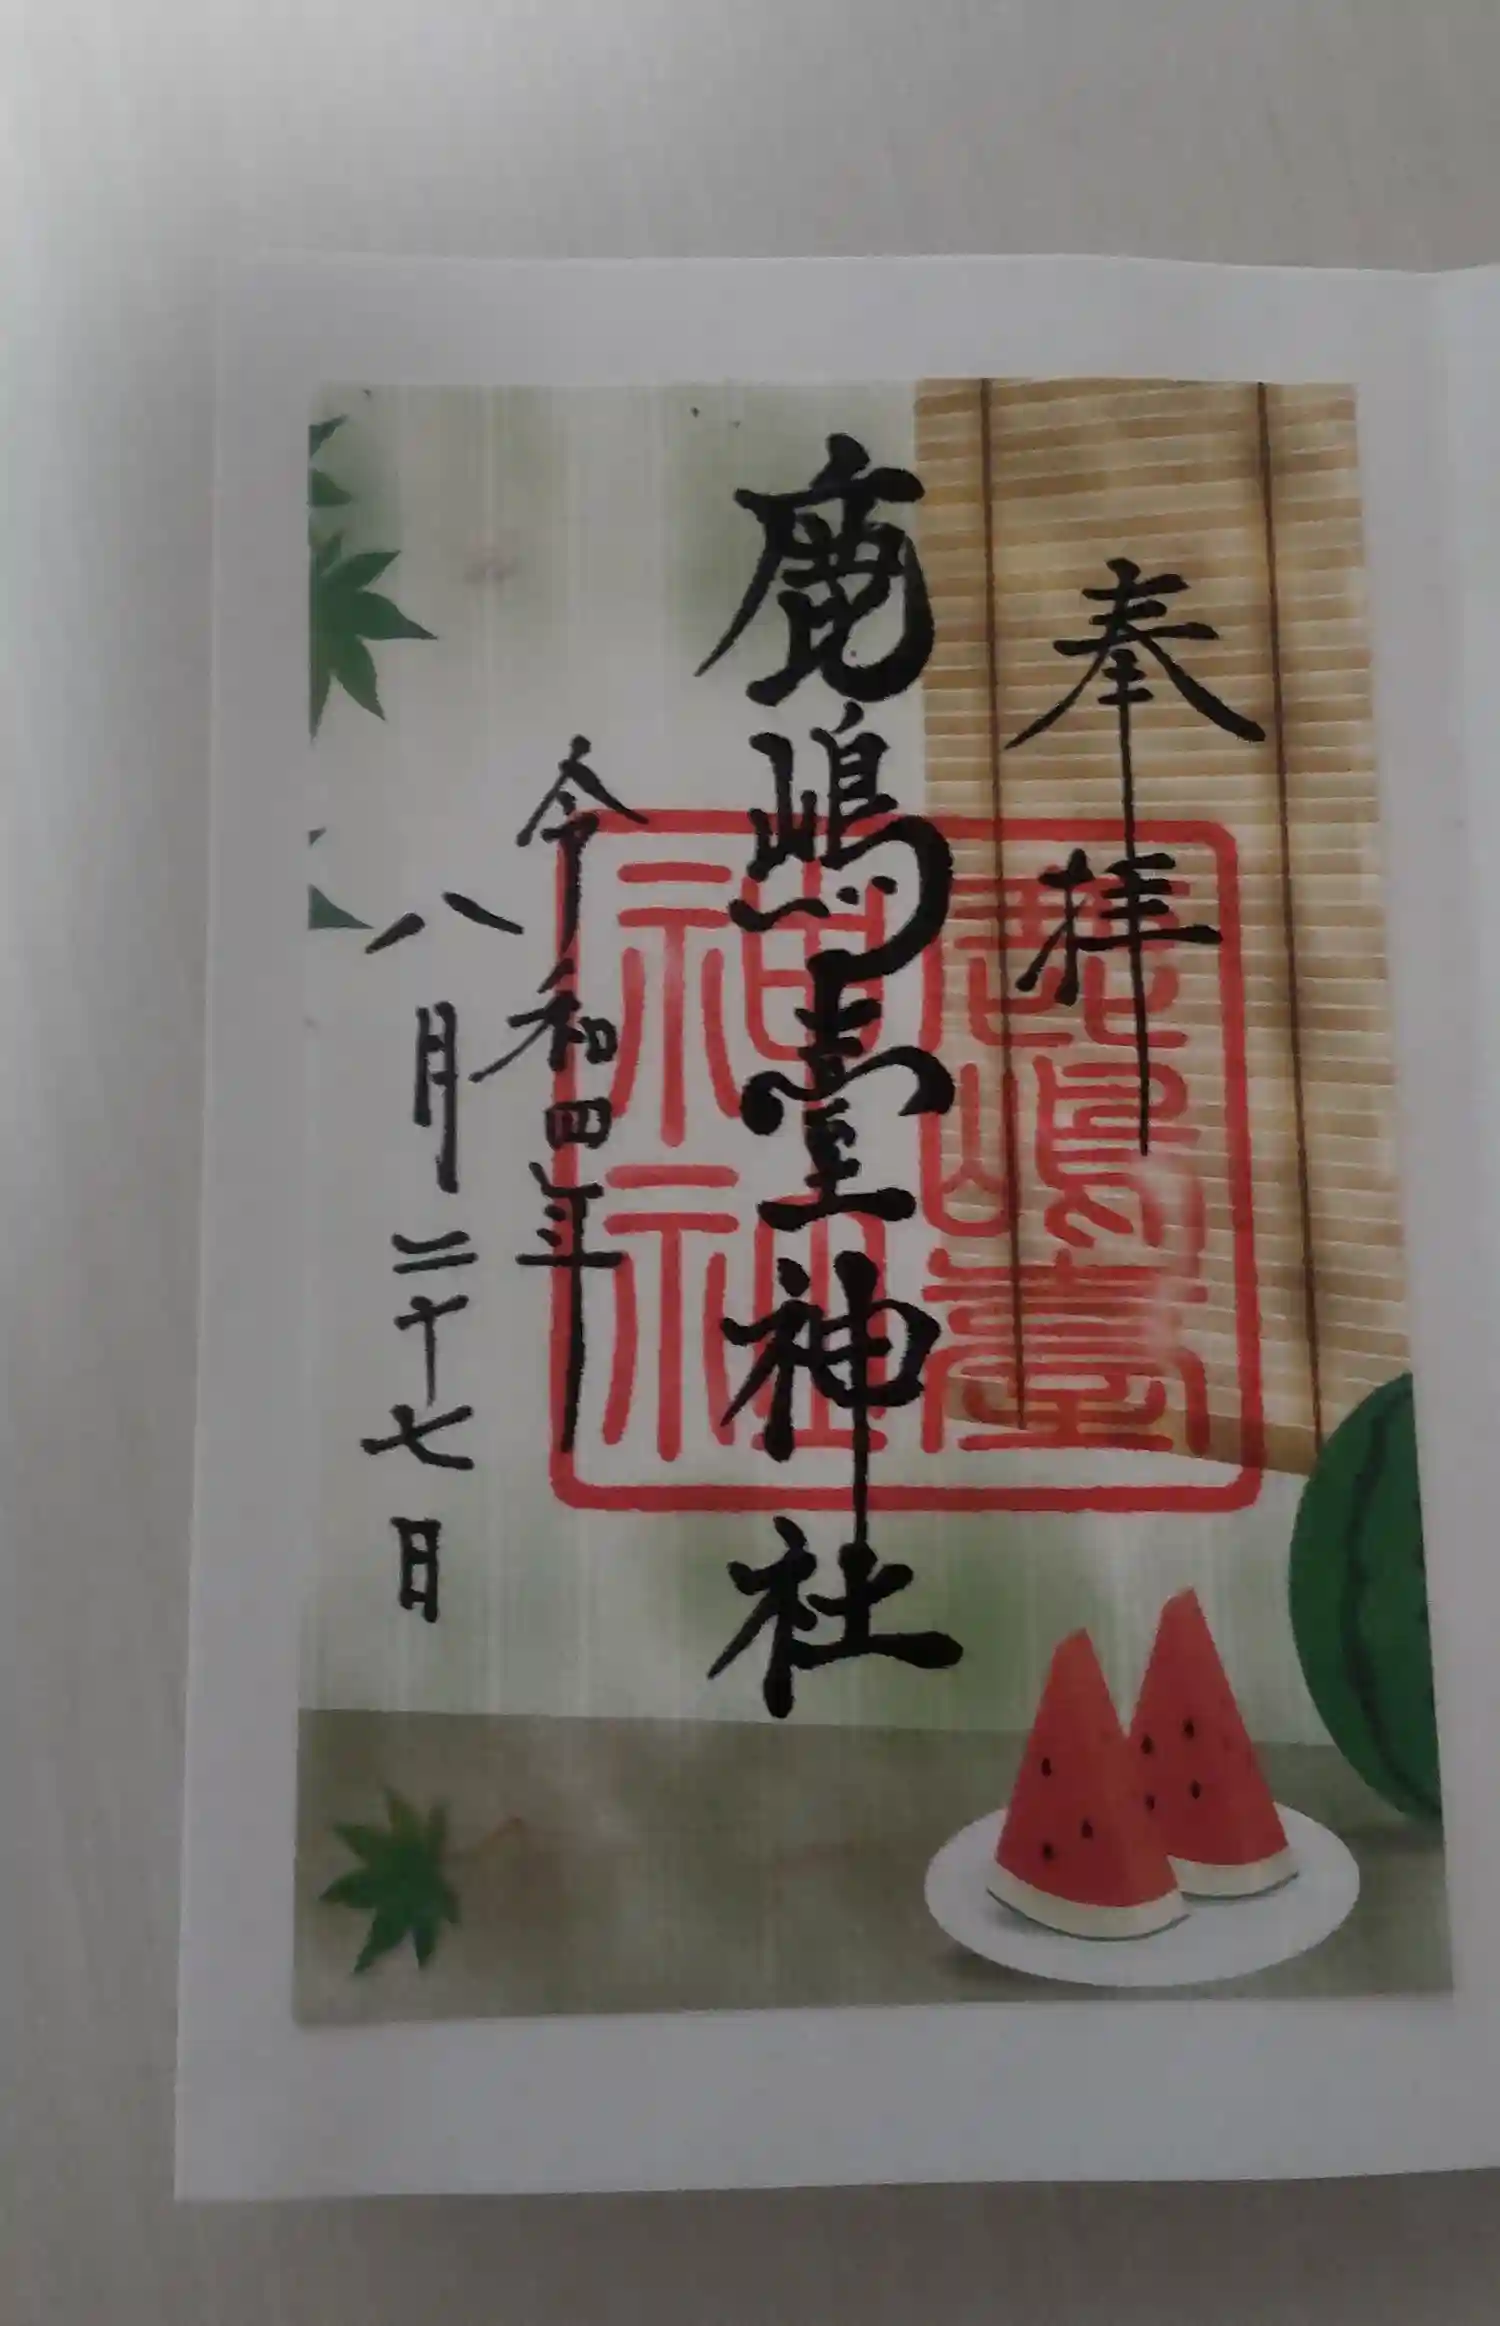 奉拝
鹿嶋臺神社
令和四年
八月二十七日
鹿嶋臺
神社